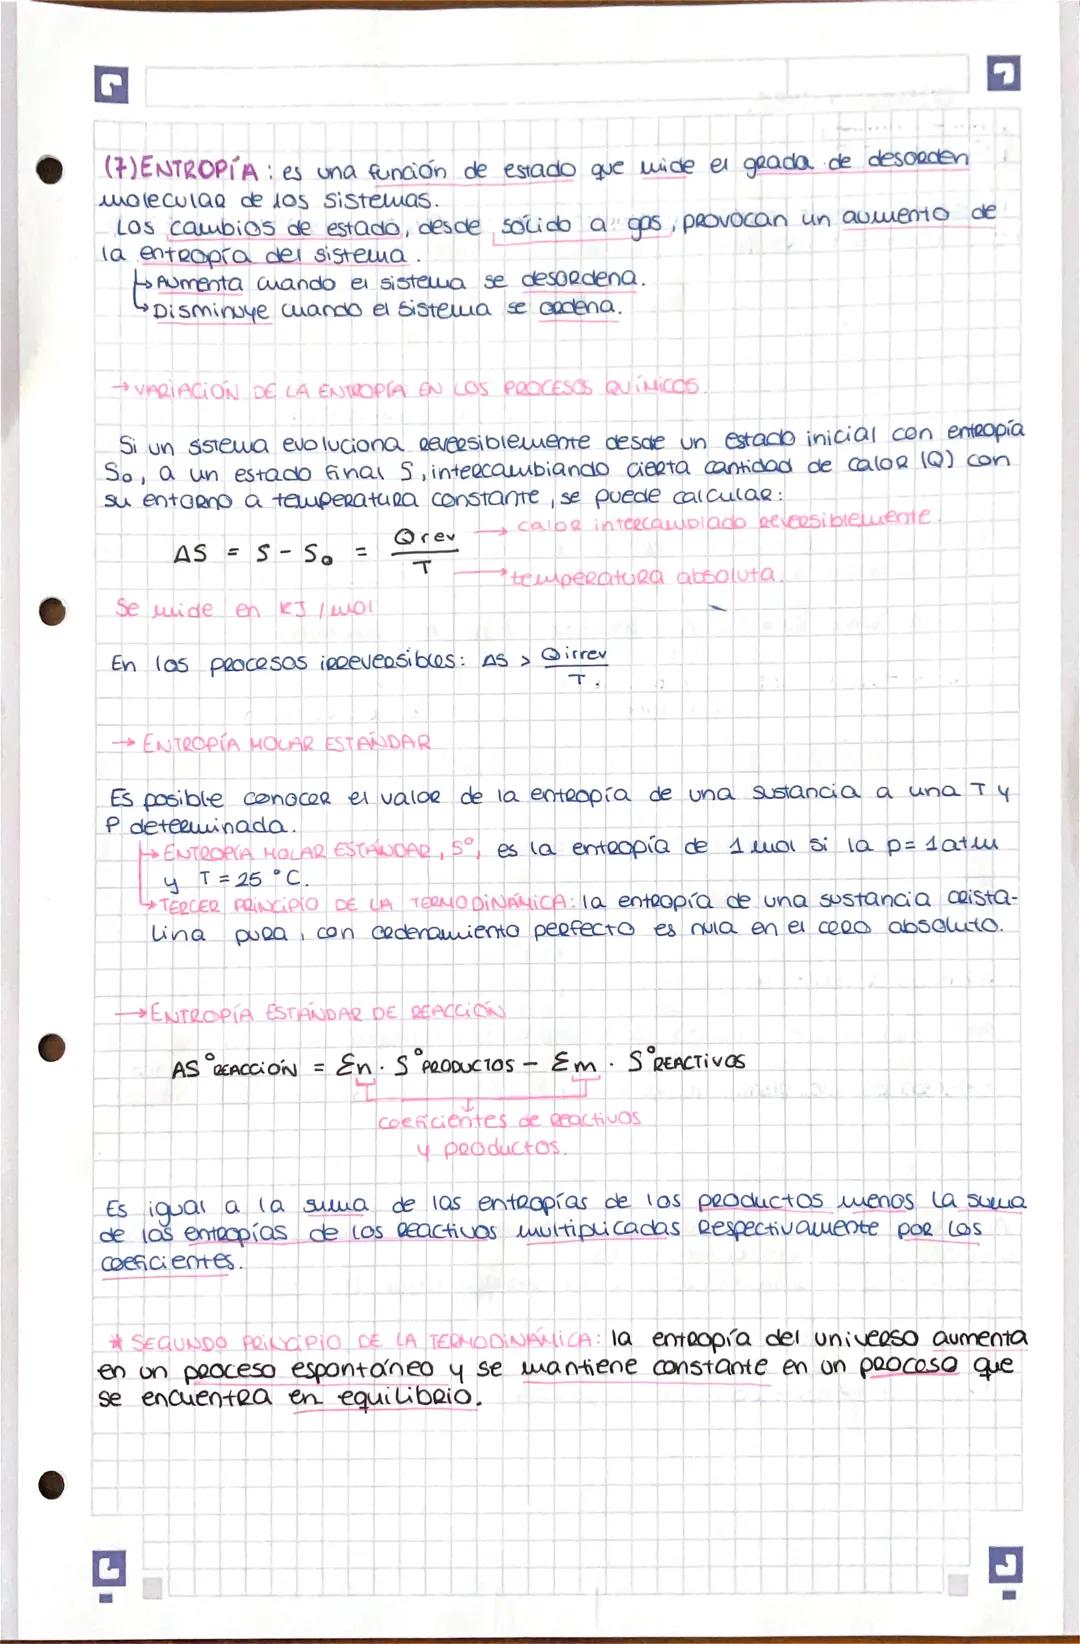 (7) ENTROPÍA: es una función de estado que mide el grada de desorden
molecular de los sistemas.
Los cambios de estado, desde sólido a gas, provocan un aumento de
la entropía del sistema.
↳ Aumenta cuando el sistema se desordena.
↳ Disminuye cuando el sistema se ordena.
→ VARIACIÓN DE LA ENTROPÍA EN LOS PROCESOS QUÍMICOS.
Si un sistema evoluciona reversiblemente desde un estado inicial con entropía
So, a un estado final S, intercambiando cierta cantidad de calor (Q) con
su entorno a temperatura constante, se puede calcular:
ΔS = S - So = Qrev / T
→ calor intercambiado reversiblemente.
→ temperatura absoluta.
Se mide en KJ/mol
En los procesos irreversibles: ΔS > Qirrev / T.
→ ENTROPÍA MOLAR ESTÁNDAR
Es posible conocer el valor de la entropía de una sustancia a una T y
P determinada.
↳ ENTROPÍA MOLAR ESTÁNDAR, Sº, es la entropía de 1 mol si la p= 1atm
y T = 25 °C.
↳ TERCER PRINCIPIO DE LA TERMODINÁMICA: la entropía de una sustancia crista-
lina pura, con ordenamiento perfecto es nula en el cero absoluto.
→ ENTROPÍA ESTÁNDAR DE REACCIÓN
ΔSº REACCIÓN = Σn · Sº PRODUCTOS - Σm · Sº REACTIVOS
coeficientes de reactivos
y productos.
Es igual a la suma de las entropías de los productos menos la suma
de las entropías de los reactivos multiplicadas respectivamente por los
coeficientes.
* SEGUNDO PRINCIPIO DE LA TERMODINÁMICA: la entropía del universo aumenta
en un proceso espontáneo y se mantiene constante en un proceso que
se encuentra en equilibrio.